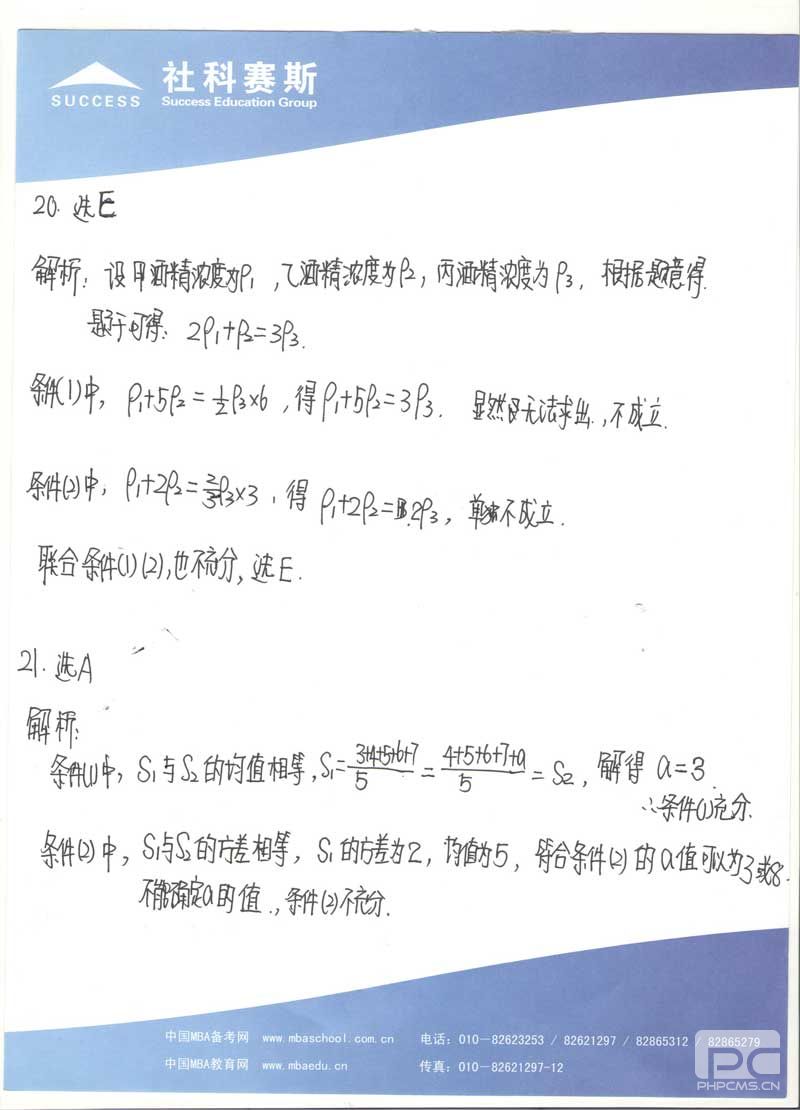 社科赛斯
SUCCESS
Success Education Group
20. 选E
解析: 设甲酒精浓度为ρ1, 乙酒精浓度为ρ2, 丙酒精浓度为ρ3, 根据题意得.
题干可得: 2ρ1+ρ2=3ρ3.
条件(1)中, ρ1+5ρ2=1/2ρ3×6, 得ρ1+5ρ2=3ρ3. 显然无法求出, 不成立.
条件(2)中, ρ1+2ρ2=2/3ρ3×3, 得ρ1+2ρ2=2ρ3, 单独不成立.
联合条件(1)(2),也不充分,选E.
21. 选A
解析:
条件(1)中, S1与S2的均值相等, S1=3+4+5+6+7/5=4+5+6+7+a/5=S2, 解得 a=3.
∴条件(1)充分.
条件(2)中, S1与S2的方差相等, S1的方差为2, 均值为5, 符合条件(2)的a值可以为3或8.
不能确定a的值., 条件(2)不充分.
中国MBA备考网 www.mbaschool.com.cn 电话: 010-82623253 / 82621297 / 82865312 / 82865279
中国MBA教育网 www.mbaedu.cn 传真: 010-82621297-12
PC
PHPCMS.CN